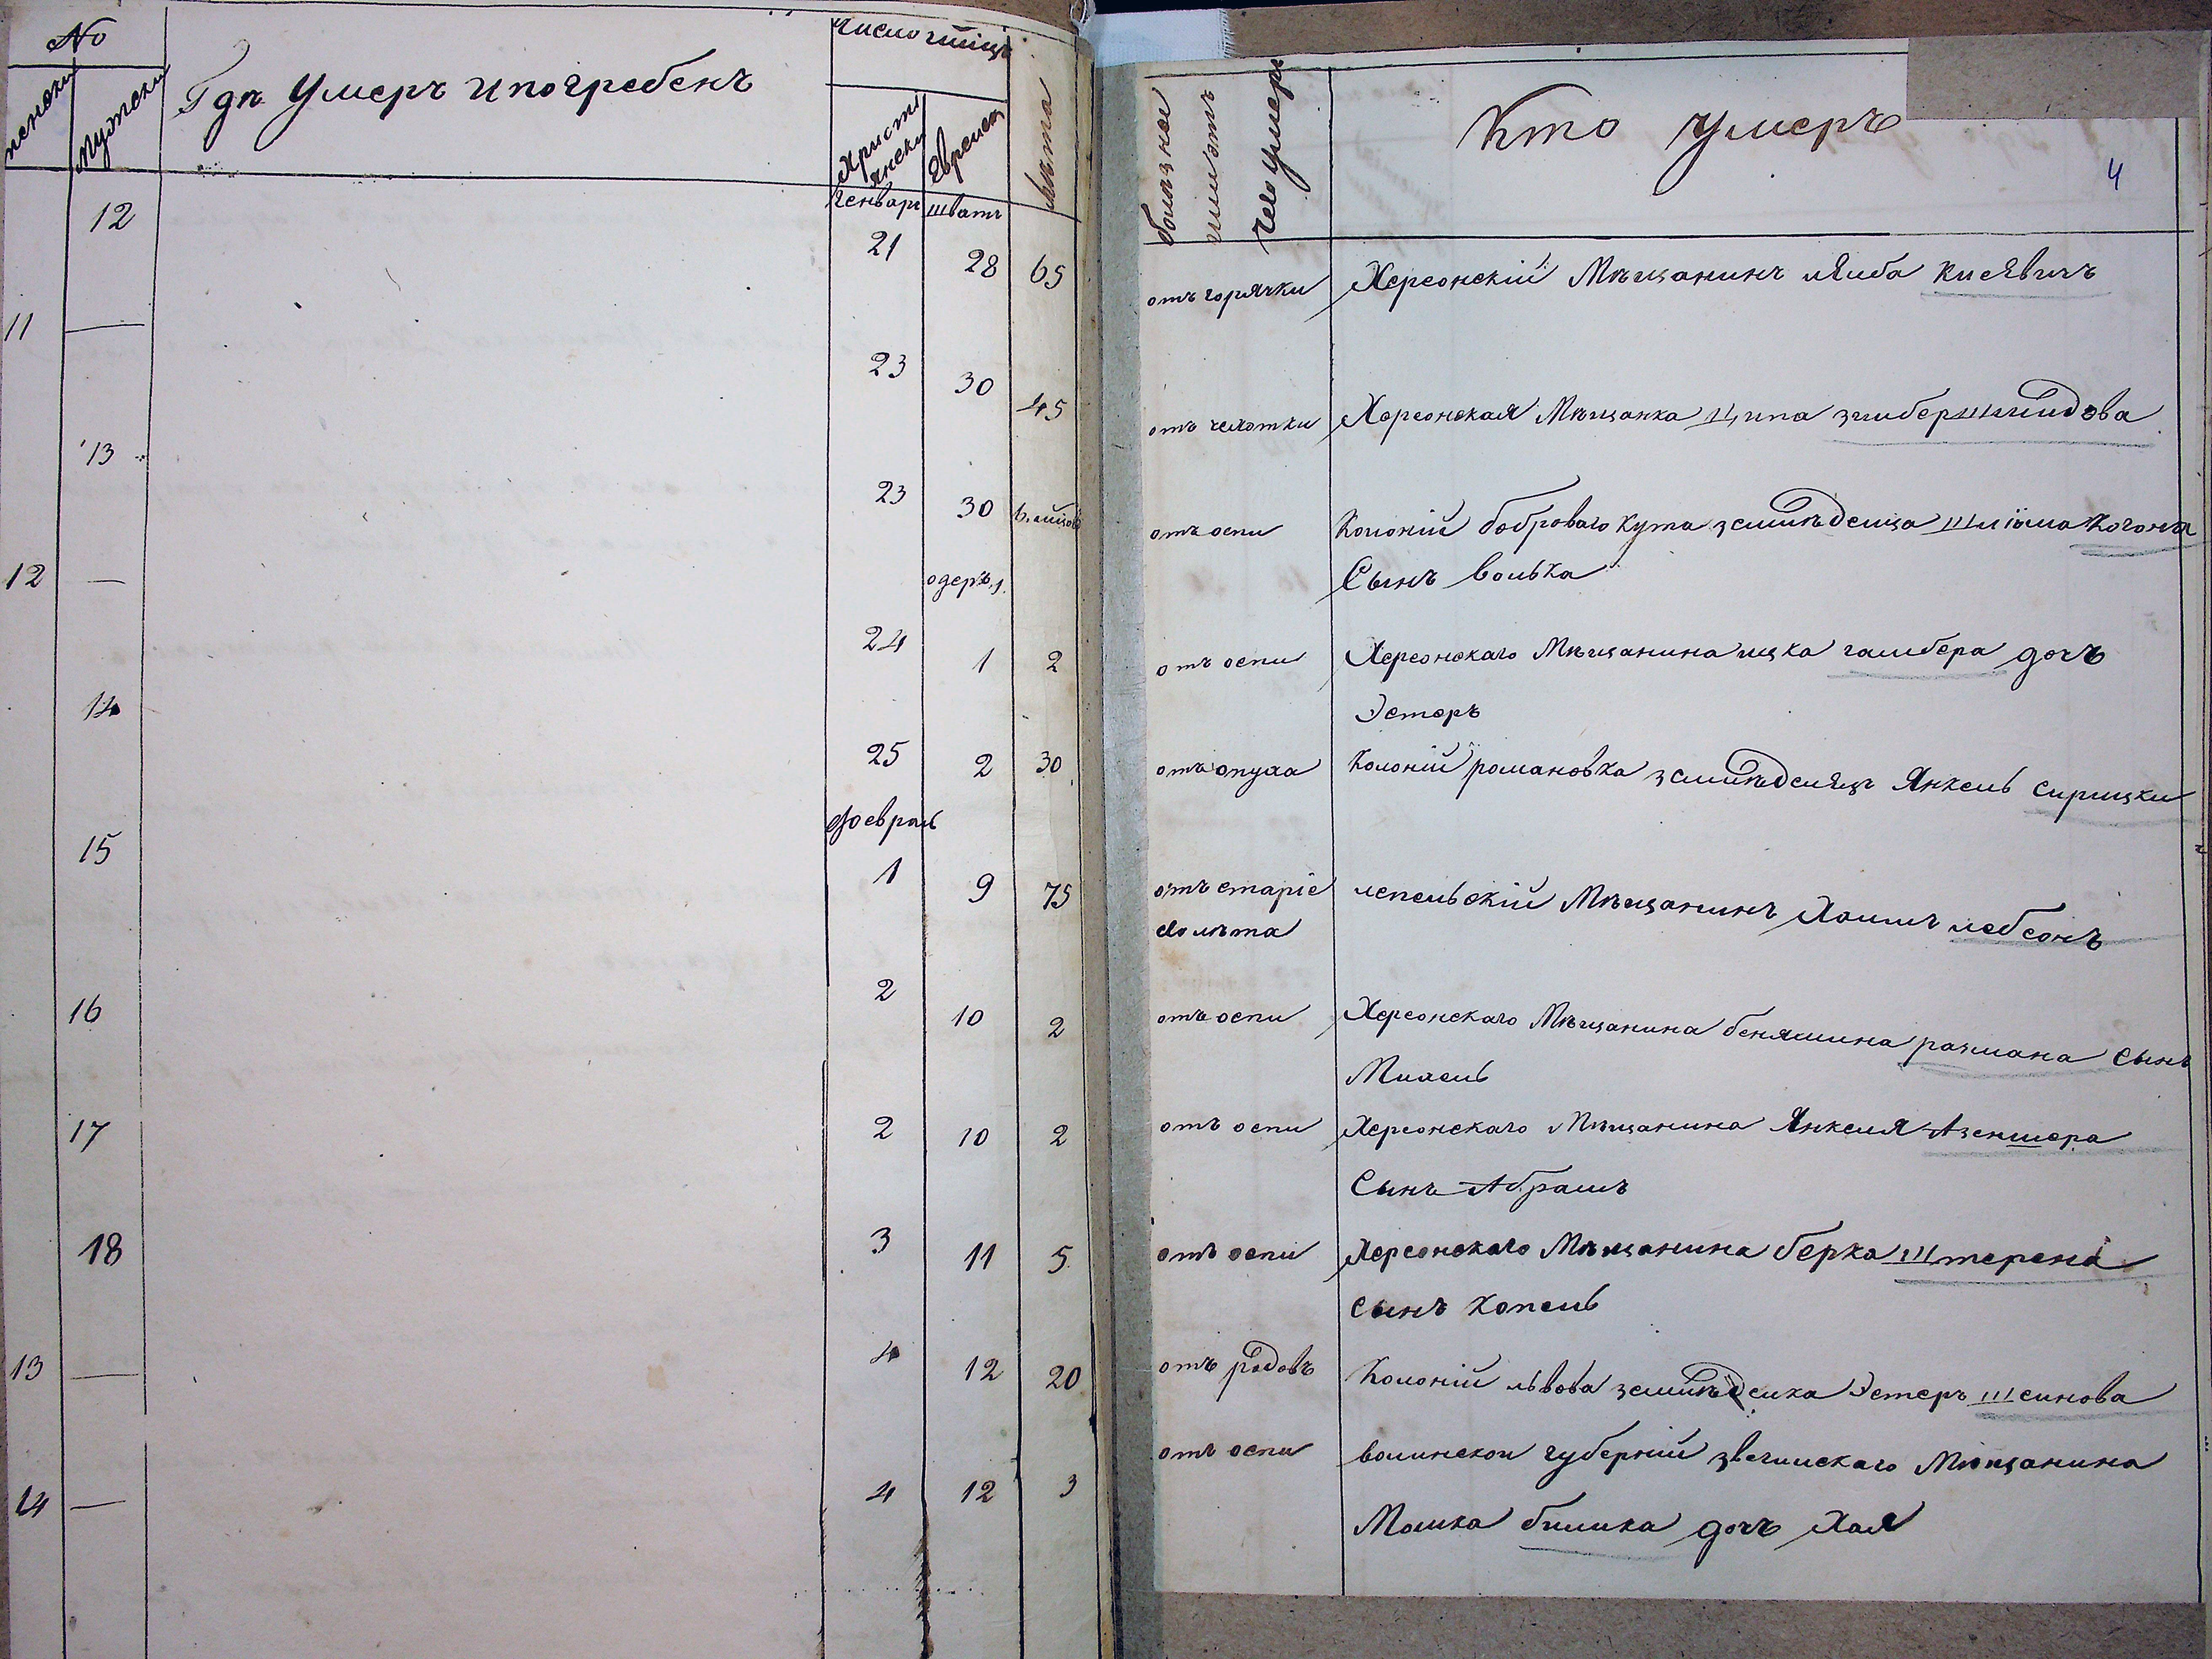 No
женски
мужески
Гдѣ Умеръ ипогребенъ
Число
Христі
янски
Еврейск
Лѣта
болѣзнеі
илиотъ
чего умеръ
Кто умеръ
4
Генварь шватъ
12 21 28 65 отъ горячки Херсонскій Мѣщанинъ лейба Кисѣвичъ
11 — 23 30 45 отъ чехотки Херсонская Мѣщанка Ципа зильбершмидова
13 23 30 отъ оспи Колоній боброваго Кута землѣделца Шліома Когона
Сынъ волька
одеръ,1.
12 — 24 1 2 отъ оспи Херсонскаго Мѣщанина ицка гамбера дочъ
Эстеръ
14 25 2 30 отъ опуха Колоній романовка землѣделяцъ Янкель сирицки
Февраль
15 1 9 75 отъ старіе
лѣта
лепельскій Мѣщанинъ Хаимъ лебсонъ
16 2 10 2 отъ оспи Херсонскаго Мѣщанина бенямина рахмана Сынъ
Михель
17 2 10 2 отъ оспи Херсонскаго Мѣщанина Янкеля Азеншера
Сынъ Абрамъ
18 3 11 5 отъ оспи Херсонскаго Мѣщанина берка Штерена
сынъ Копель
13 — 4 12 20 отъ родовъ Колоній львова землѣделка Эстеръ шеинова
14 — 4 12 3 отъ оспи волинскои губерній звегилскаго Мѣщанина
Мошка билика дочъ Хая